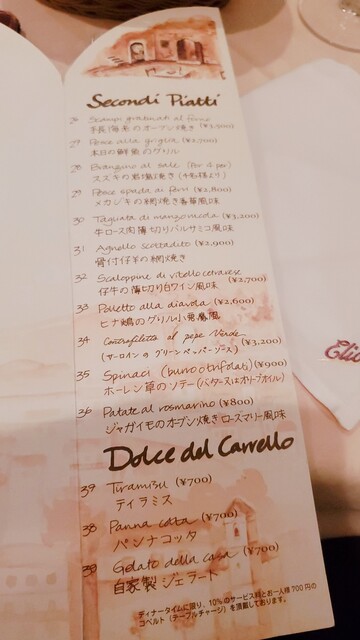 Secondi Piatti
26 Scampi gratinati al forno (¥3,500)
手長海老のオーブン焼き
27 Pesce alla griglia (¥2,700)
本日の鮮魚のグリル
28 Branzino al sale (Per 4 per)
スズキの岩塩焼き (4名様より)
29 Pesce spada ai ferri (¥2,800)
メカジキの網焼き香草風味
30 Tagliata di manzo moda (¥3,200)
牛ロース肉薄切りバルサミコ風味
31 Agnello scottadito (¥2,900)
骨付仔羊の網焼き
32 Scaloppine di vitello cetrarese (¥2,700)
仔牛の薄切り白ワイン風味
33 Polletto alla diavola (¥2,600)
ヒナ鶏のグリル小悪魔風
34 Contrefiletto al pepe Verde (¥3,200)
(サーロインのグリーンペッパーソース)
35 Spinaci (burro oth folat) (¥900)
ホーレン草のソテー(バター又はオリーブオイル)
36 Patate al rosmarino (¥800)
ジャガイモのオーブン焼きローズマリー風味
Dolce del Carrello
39 Tiramisu (¥700)
ティラミス
38 Panna cotta (¥700)
パンナコッタ
39 Gelato della casa (¥700)
自家製ジェラート
ディナータイムに限り、10%のサービス料とお一人様700円の
コペルト(テーブルチャージ)を頂戴しております。